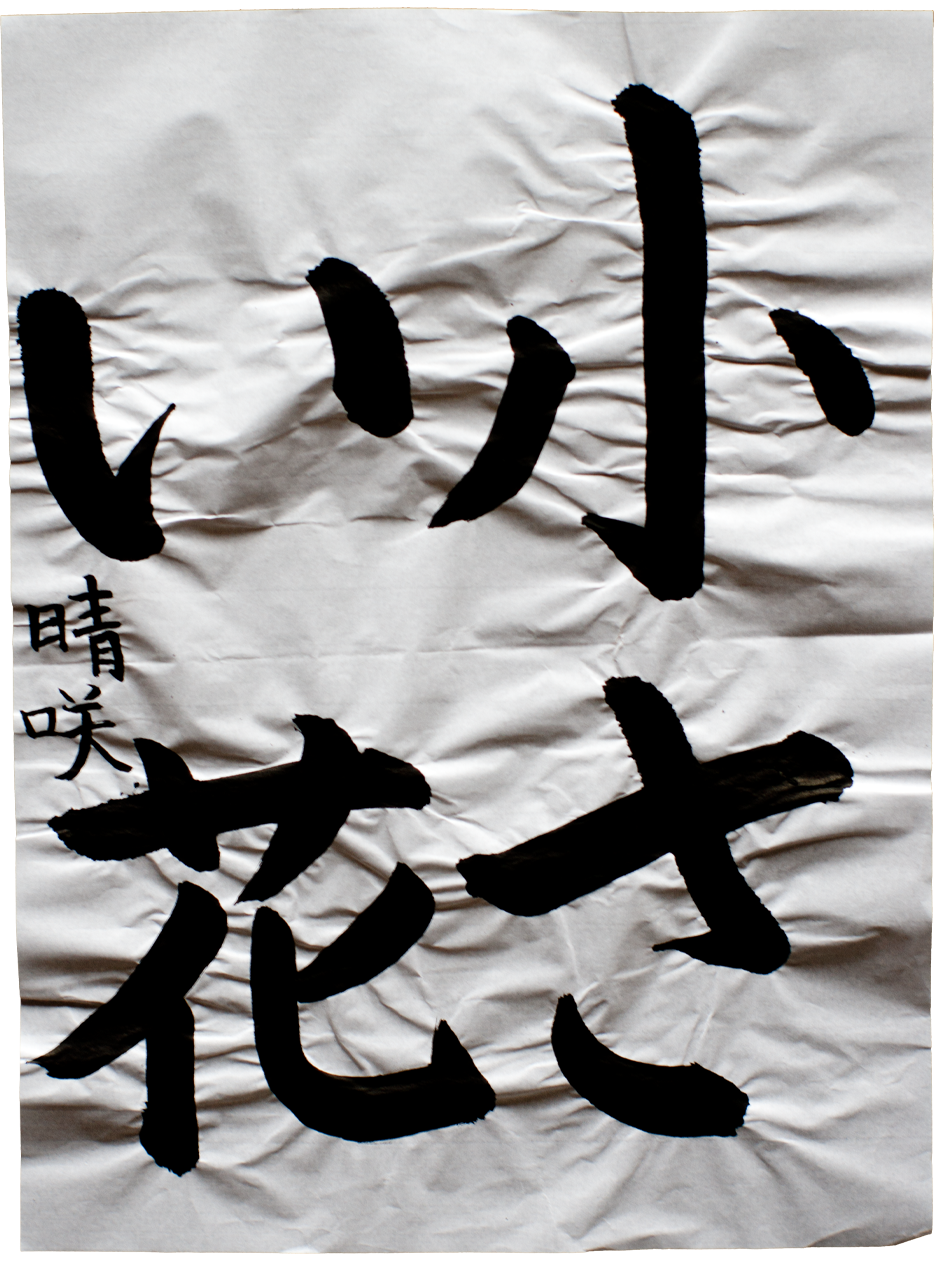 小さ
い花
晴咲